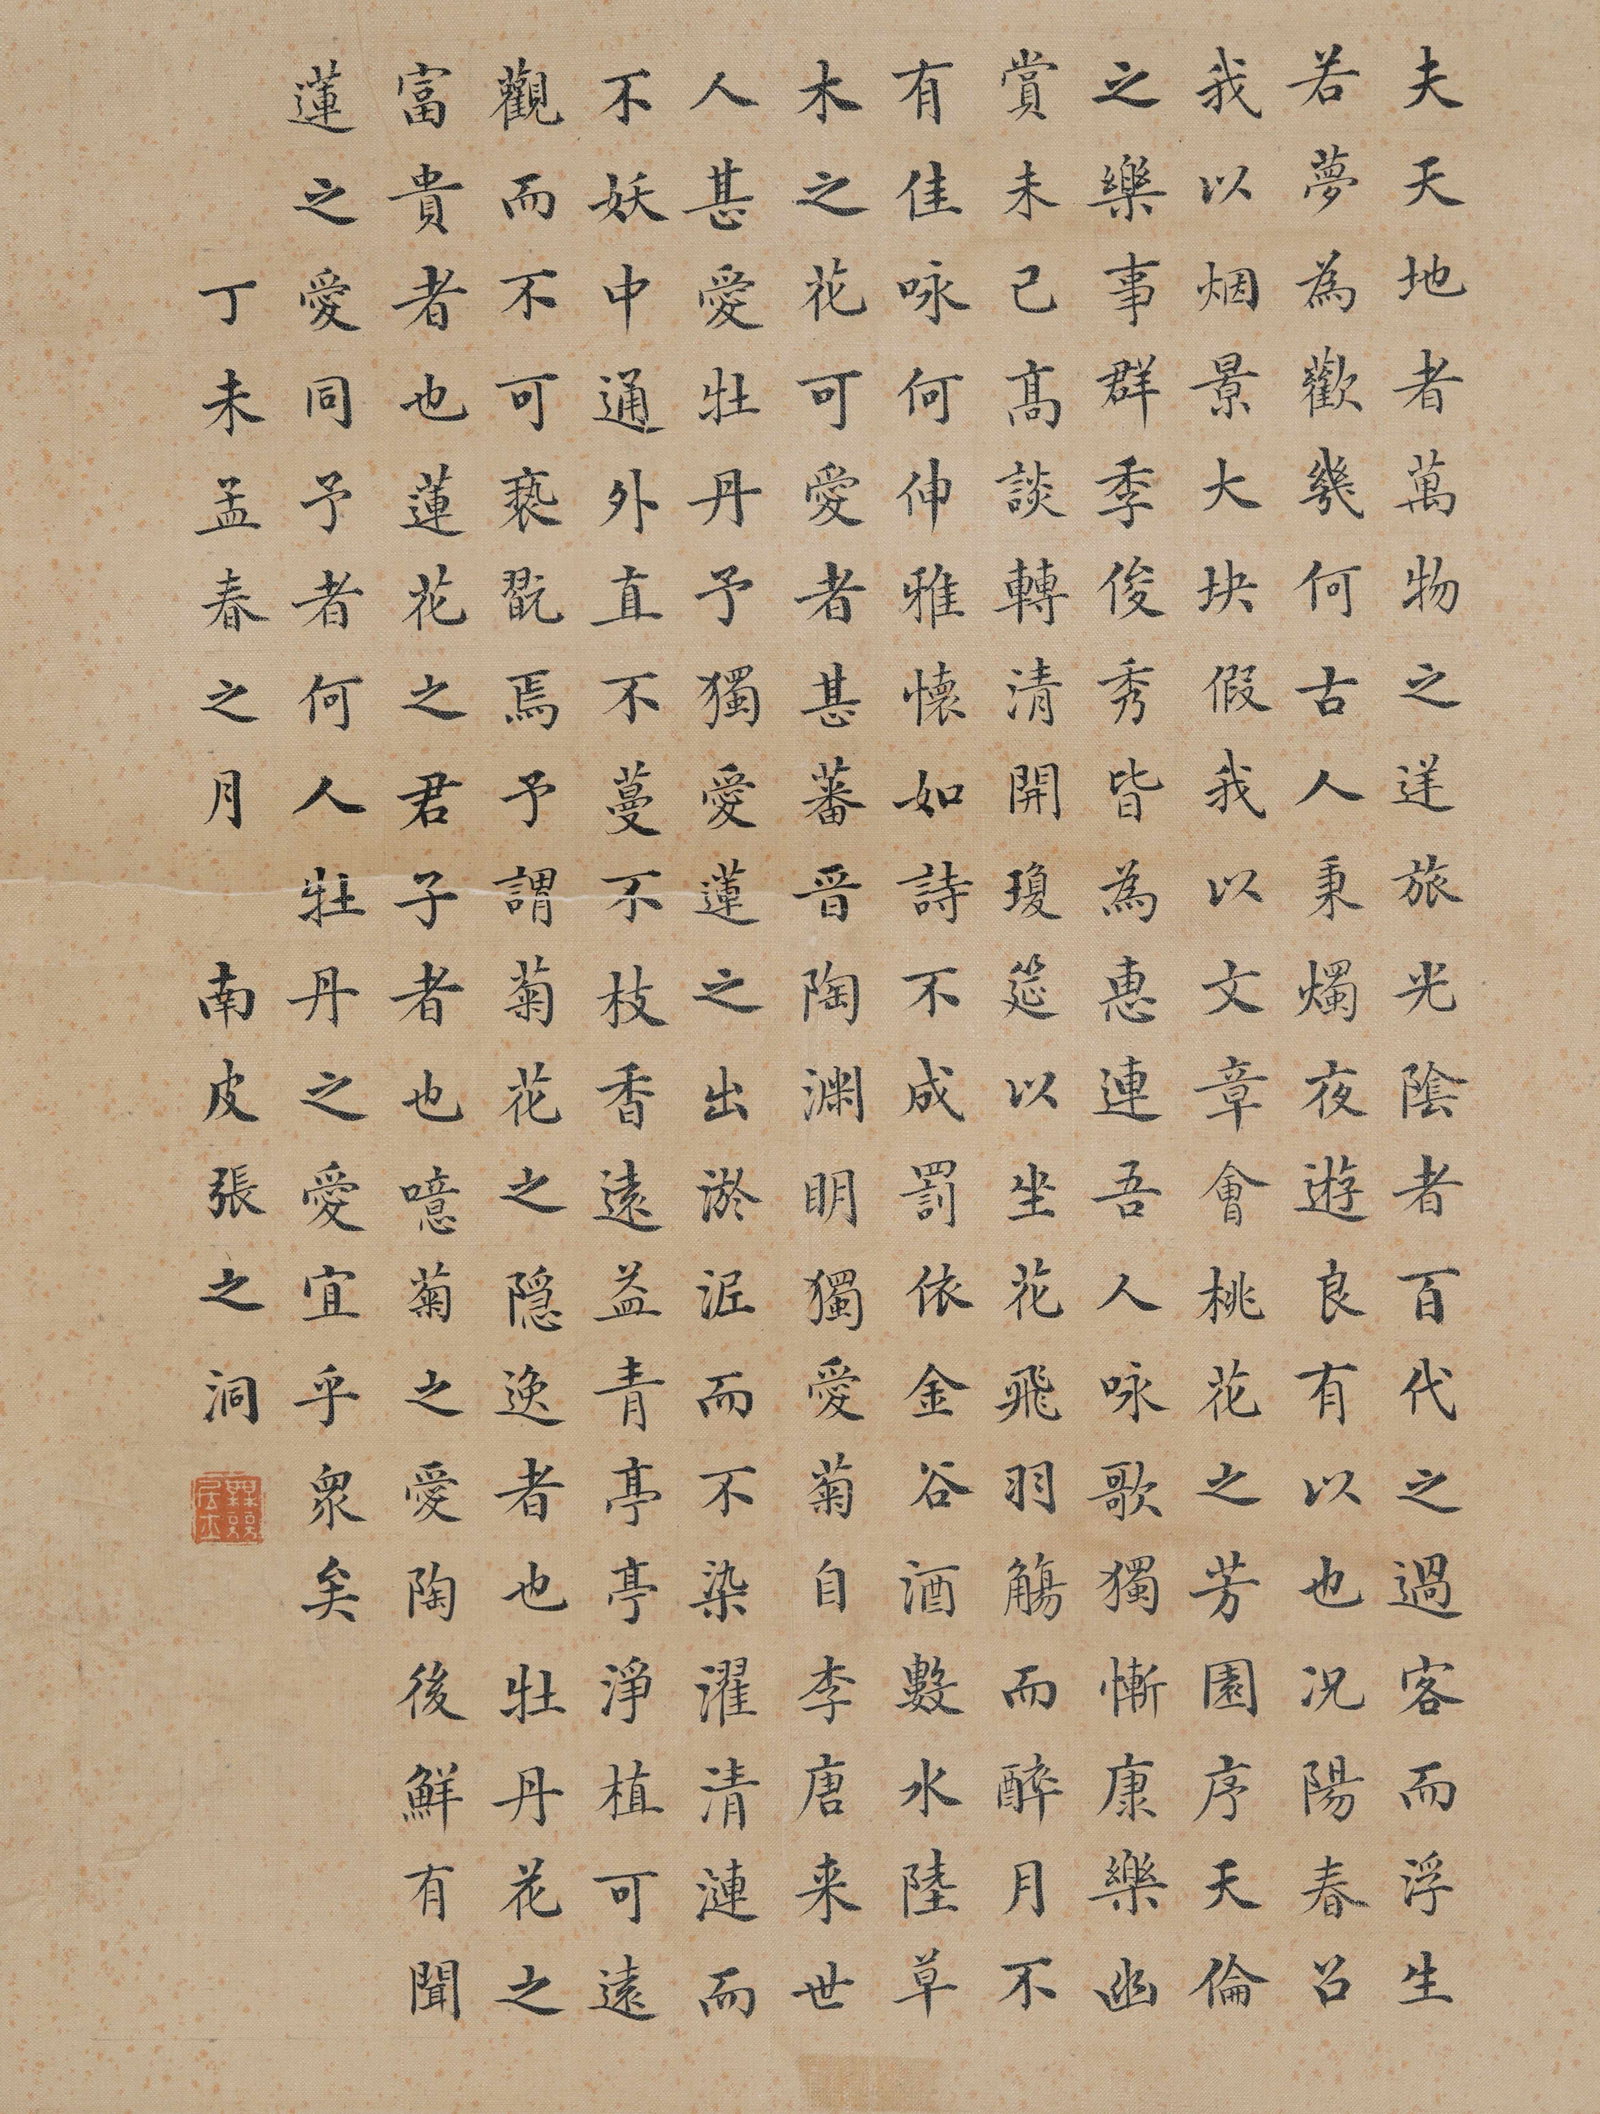 夫天地者萬物之逆旅光陰者百代之過客而浮生
若夢為歡幾何古人秉燭夜遊良有以也况陽春召
我以烟景大块假我以文章會桃花之芳園序天倫
之樂事群季俊秀皆為惠連吾人咏歌獨慚康樂幽
賞未已高談轉清開瓊筵以坐花飛羽觴而醉月不
有佳咏何伸雅懷如詩不成罰依金谷酒數水陸草
木之花可愛者甚蕃晋陶渊明獨愛菊自李唐来世
人甚愛牡丹予獨愛蓮之出淤泥而不染濯清漣而
不妖中通外直不蔓不枝香遠益青亭亭淨植可遠
觀而不可褻翫焉予謂菊花之隠逸者也牡丹花之
富貴者也蓮花之君子者也噫菊之愛陶後鮮有聞
蓮之愛同予者何人牡丹之愛宜乎衆矣
丁未孟春之月 南皮張之洞
無競居士